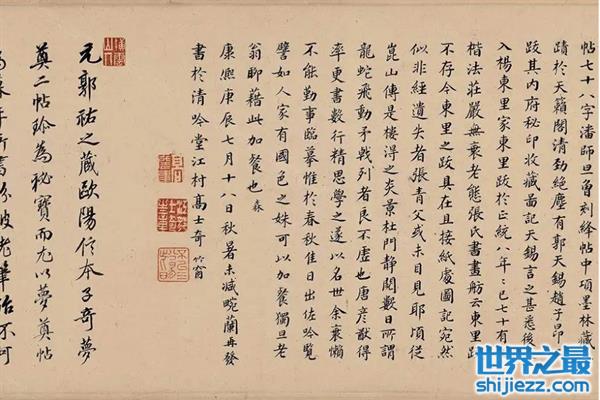 帖七十八字潘師旦曾刻絳帖中項墨林藏
蹟於天籟閣清勁絕塵有郭天錫趙子昂
跋其內府秘印收藏圖記天錫言之甚悉後
入楊東里家東里跋於正統八年〻已七十有
楷法莊嚴無衰老態張氏書畫舫云東里跋
不存今東里之跋具在且接紙處圖記宛然
似非經遺失者張青父或未目見耶頃從
崑山傳是樓得之炎景杜門靜閱數日所謂
龍蛇飛動矛戟列者良不虛也唐彥猷得
率更書數行精思學之遂以名世余衰懶
不能勤事臨摹惟於春秋佳日出佐吟覽
譬如人家有國色之姝可以加餐獨旦老
翁聊藉此加餐也
康熙庚辰七月十八日秋暑未減畹蘭再發
書於清吟堂江村高士奇
竹窗
元郭祐之藏歐陽信本子奇夢
奠二帖珍為秘寶而尤以夢奠帖
世界之最
shijiezz.com